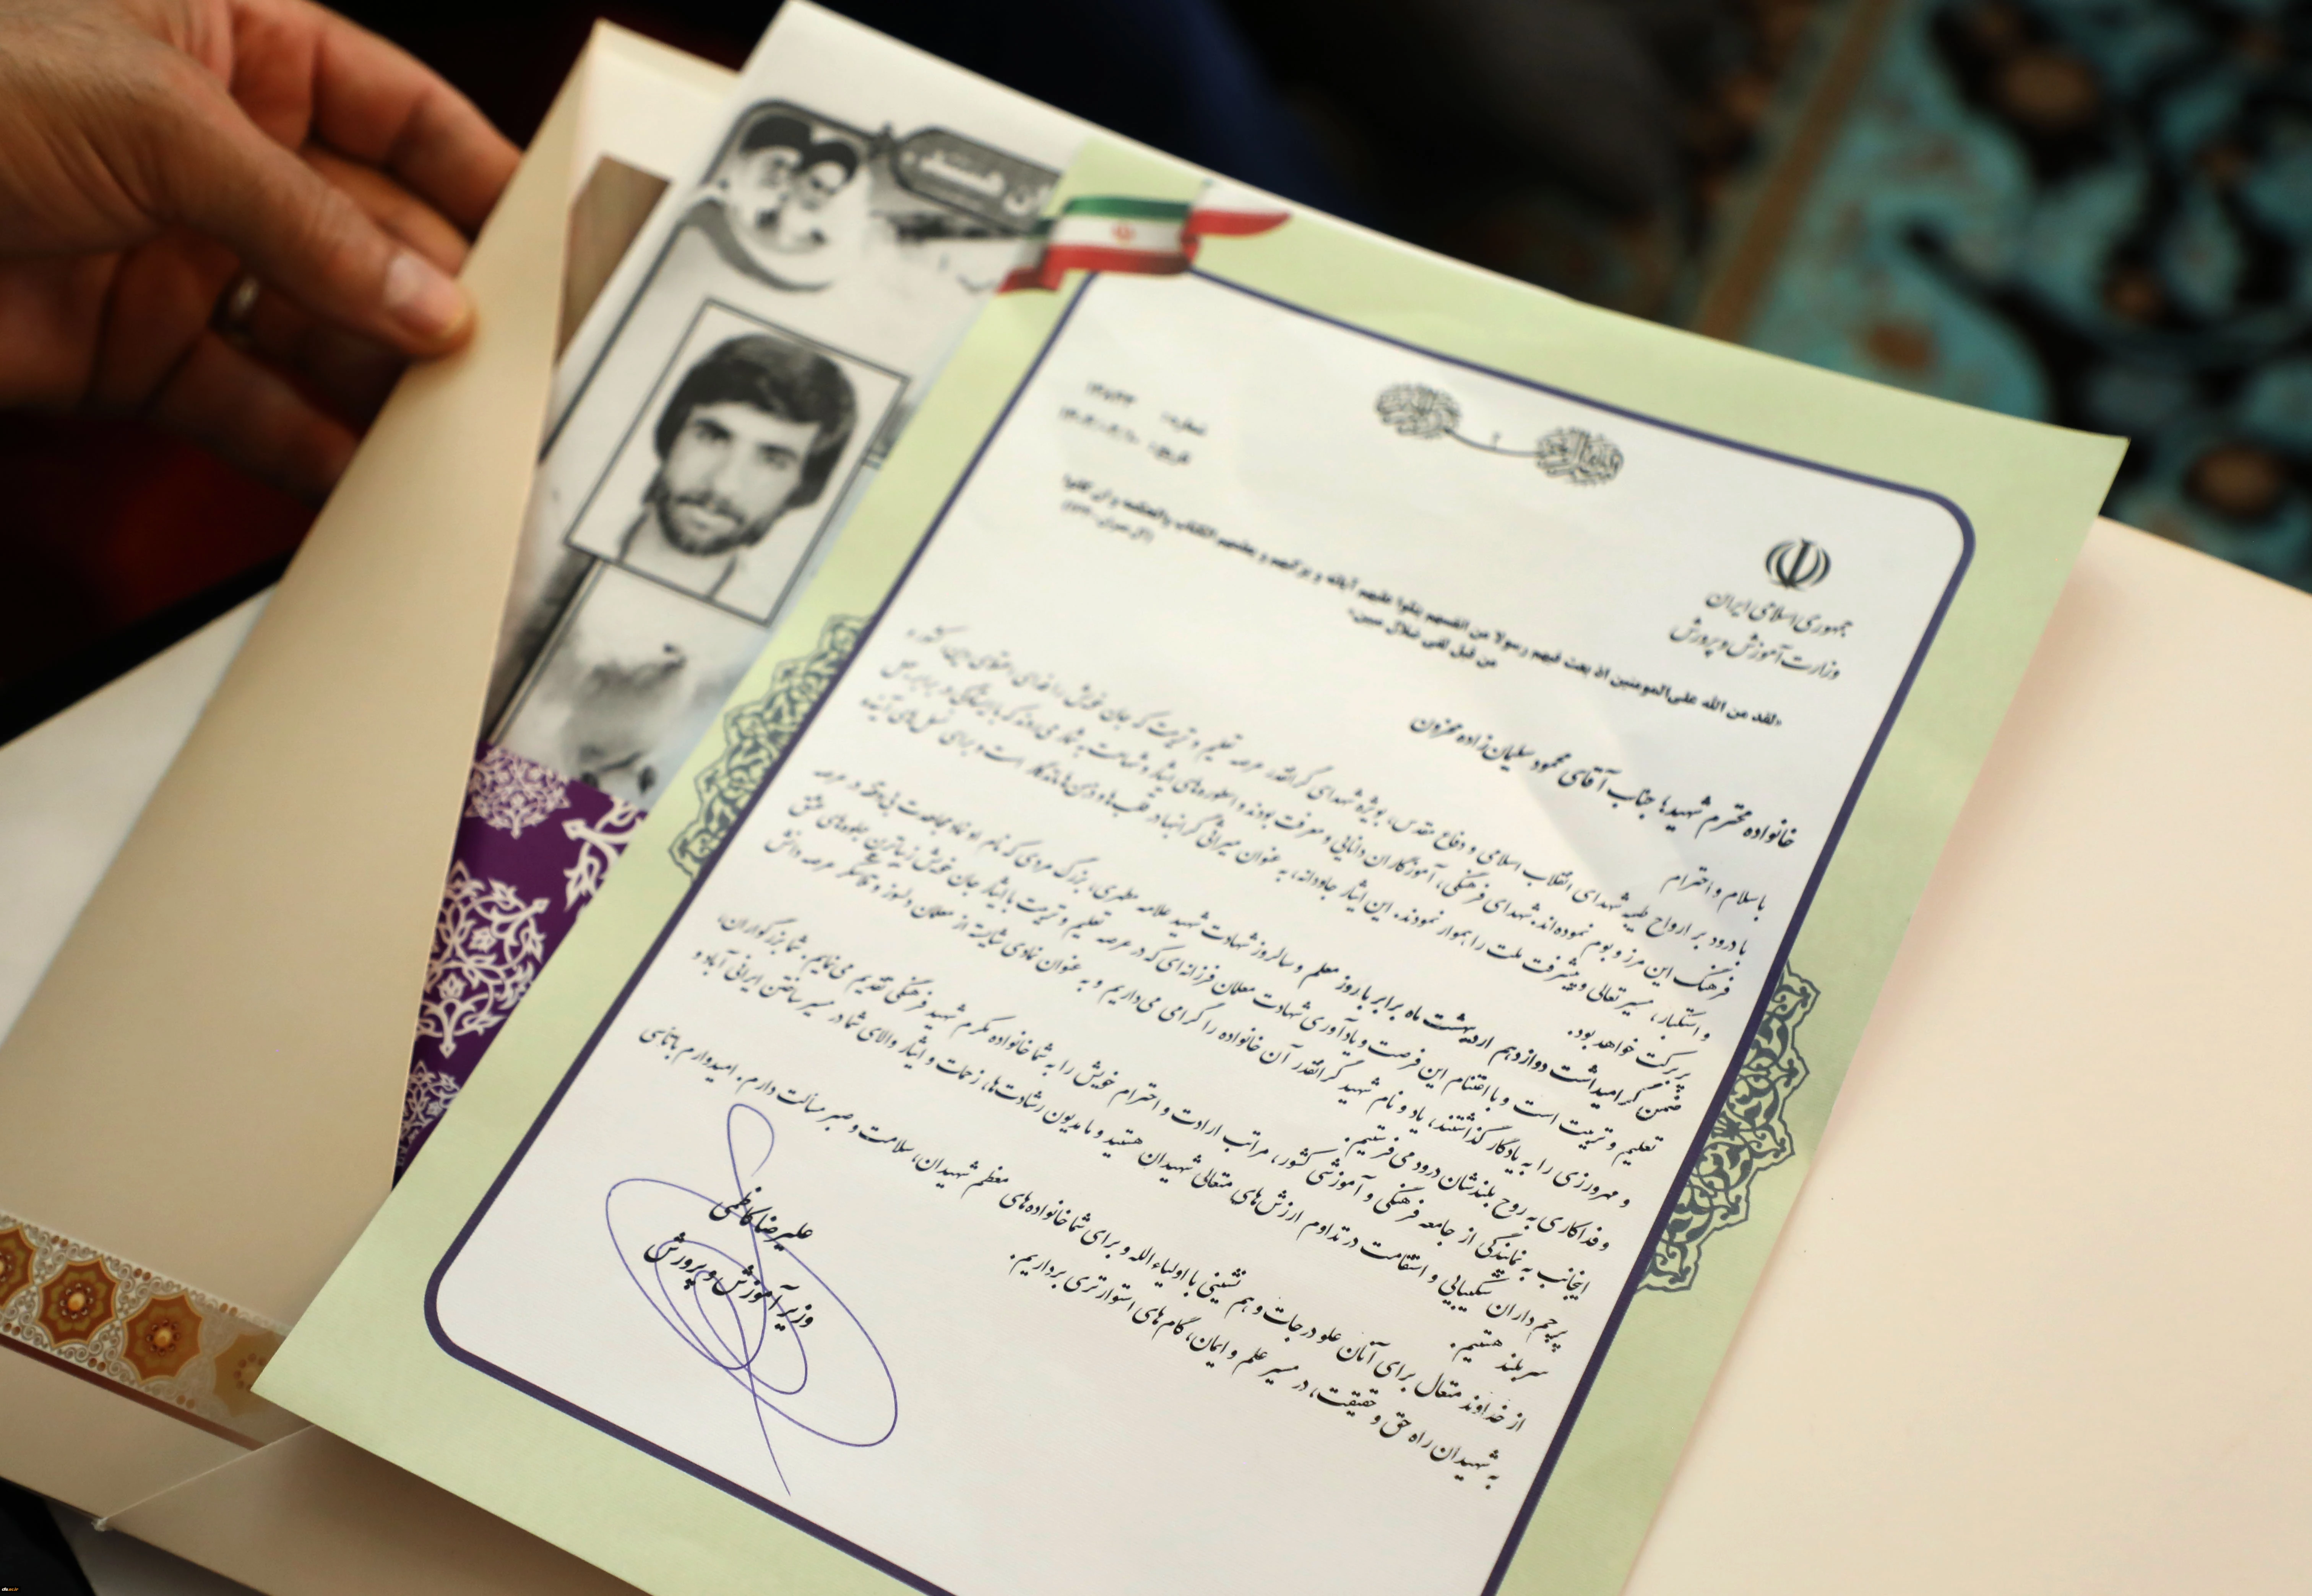 شماره:
تاریخ:
جمهوری اسلامی ایران
وزارت آموزش و پرورش
«لقد من الله علی المومنین اذ بعث فیهم رسولا من انفسهم یتلوا علیهم آیاته و یزکیهم و یعلمهم الکتاب والحکمه و ان کانوا
من قبل لفی ضلال مبین»
خانواده محترم شهید؛ جناب آقای محمود سلیمان‌زاده محزون
با سلام و احترام
با درود بر ارواح طیبه شهدای انقلاب اسلامی و دفاع مقدس، بویژه شهدای گرانقدر عرصه تعلیم و تربیت که جان خویش را فدای اعتلای دین، کشور و
فرهنگ این مرز و بوم نموده‌اند. شهدای فرهنگی، آموزگاران دانایی و معرفت بودند و اسطوره‌های ایثار و شهامت به شمار می‌روند که با ایستادگی در برابر
و استکبار، مسیر تعالی و پیشرفت ملت را هموار نمودند. این ایثار جاودانه، به عنوان میراثی گرانبها در قلب‌ها و ذهن‌ها ماندگار است و برای نسل‌های آینده
پربرکت خواهد بود.
ضمن گرامیداشت دوازدهم اردیبهشت ماه برابر با روز معلم و سالروز شهادت شهید علامه مطهری، بزرگ مردی که نام او نماد مجاهدت بی‌وقفه در عرصه
تعلیم و تربیت است و با اغتنام این فرصت و یادآوری شهادت معلمان فرزانه‌ای که در عرصه تعلیم و تربیت با ایثار جان خویش زیباترین جلوه‌های عشق
و مهرورزی را به یادگار گذاشتند، یاد و نام شهید گرانقدر آن خانواده را گرامی می‌داریم و به عنوان نمادی شایسته از معلمان دلسوز و فداکار عرصه دانش
و فداکاری به روح بلندشان درود می‌فرستیم.
اینجانب به نمایندگی از جامعه فرهنگی و آموزشی کشور، مراتب ارادت و احترام خویش را به شما خانواده مکرم شهید فرهنگی تقدیم می‌نمایم. شما بزرگواران،
پرچم‌داران شکیبایی و استقامت در تداوم ارزش‌های متعالی شهیدان هستید و ما مدیون رشادت‌ها، زحمات و ایثار والای شما در مسیر ساختن ایرانی آباد و
سربلند هستیم.
از خداوند متعال برای آنان علو درجات و هم نشینی با اولیاء الله و برای شما خانواده‌های معظم شهیدان، سلامت و صبر مسألت دارم. امیدوارم با تأسی
به شهیدان راه حق و حقیقت، در مسیر علم و ایمان، گام‌های استوارتری برداریم.
علیرضا کاظمی
وزیر آموزش و پرورش